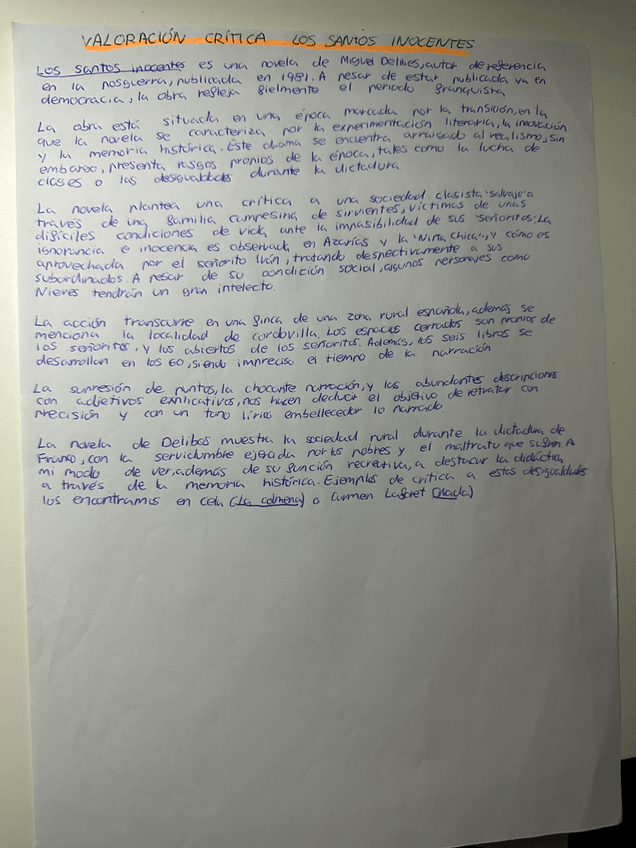 VALORACIÓN CRÍTICA LOS SANTOS INOCENTES
Los santos inocentes es una novela de Miguel Delibes, autor de referencia
en la posguerra, publicada en 1981. A pesar de estar publicada ya en
democracia, la obra refleja fielmente el periodo franquista
La obra está situada en una época marcada por la transición, en la
que la novela se caracteriza por la experimentación literaria, la innovación
y la memoria histórica. Este drama se encuentra arraigado al realismo, sin
embargo, presenta rasgos propios de la época, tales como la lucha de
clases o las desigualdades durante la dictadura
La novela plantea una crítica a una sociedad clasista "salvaje" a
través de una familia campesina de sirvientes, víctimas de unas
difíciles condiciones de vida, ante la impasibilidad de sus "señoritos". La
ignorancia e inocencia es observada en Azarías y la "Niña chica", y cómo es
aprovechada por el señorito Iván, tratando despectivamente a sus
subordinados. A pesar de su condición social, algunos personajes como
Nieves tendrán un gran intelecto.
La acción transcurre en una finca de una zona rural española, además se
menciona la localidad de cordovilla. Los espacios cerrados son propios de
los señoritos, y los abiertos de los señoritos. Además, los seis libros se
desarrollan en los 60, siendo impreciso el tiempo de la narración
La supresión de puntos, la chocante narración, y las abundantes descripciones
con adjetivos explicativos, nos hacen deducir el objetivo de retratar con
precisión y con un tono lírico embellecedor lo narrado
La novela de Delibes muestra la sociedad rural durante la dictadura de
Franco, con la servidumbre ejercida por los pobres y el maltrato que sufren. A
mi modo de ver, además de su función recreativa, a destacar la didáctica
a través de la memoria histórica. Ejemplos de crítica a estas desigualdades
los encontramos en Cela (La colmena) o Carmen Laforet (Nada)